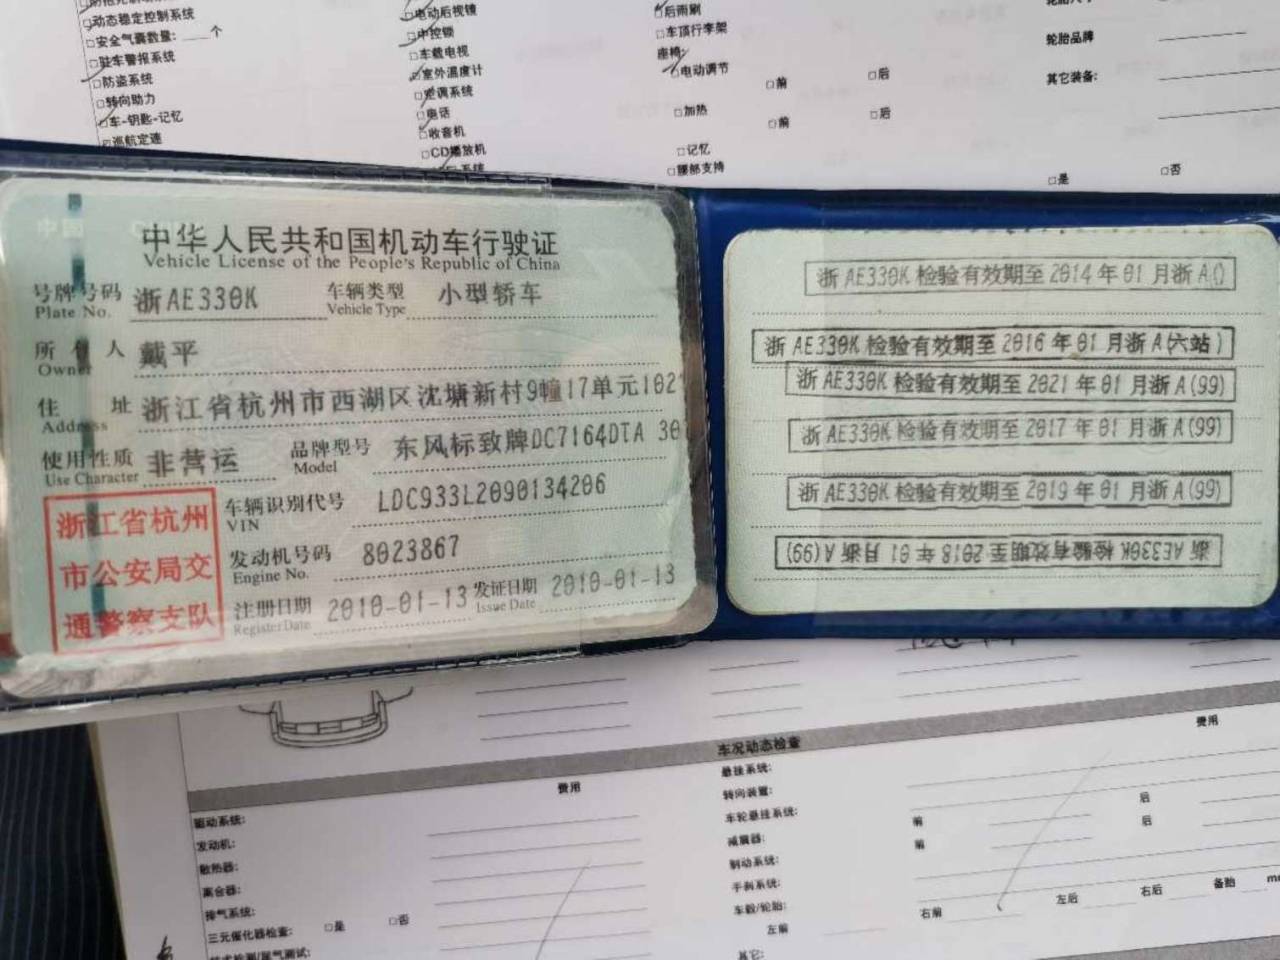 □动态稳定控制系统
□安全气囊数量: ____个
□驻车警报系统
□防盗系统
□转向助力
□车-钥匙-记忆
☑巡航定速
□电动后视镜
□中控锁
□车载电视
□室外温度计
□空调系统
□电话
□收音机
□CD播放机
□后雨刷
□车顶行李架
座椅:
□电动调节
□前
□后
□加热
□前
□后
□记忆
□腰部支持
轮胎品牌
其它装备:
□是
□否
中华人民共和国机动车行驶证
Vehicle License of the People's Republic of China
号牌号码 浙AE330K 车辆类型 小型轿车
Plate No. Vehicle Type
所有人 戴平
Owner
住 址 浙江省杭州市西湖区沈塘新村9幢17单元102
Address
使用性质 非营运 品牌型号 东风标致牌DC7164DTA 30
Use Character Model
浙江省杭州
市公安局交
通警察支队
车辆识别代号 LDC933L2090134206
VIN
发动机号码 8023867
Engine No.
注册日期 2010-01-13 发证日期 2010-01-13
Register Date Issue Date
浙AE330K 检验有效期至 2014 年 01 月浙 A()
浙 AE330K 检验有效期至 2016 年 01 月浙 A(六站)
浙 AE330K 检验有效期至 2021 年 01 月浙 A(99)
浙 AE330K 检验有效期至 2017 年 01 月浙 A(99)
浙 AE330K 检验有效期至 2019 年 01 月浙 A(99)
浙 AE330K 检验有效期至 2018 年 01 月浙 A(99)
车况动态检查
费用
费用
驱动系统:
发动机:
散热器:
离合器:
排气系统:
三元催化器检查: □是 □否
悬挂系统:
转向装置:
车轮悬挂系统: 前 后
减震器: 前 后
制动系统:
手刹系统:
车毂/轮胎: 右前 左后 右后 备胎 mm
左前
其它: